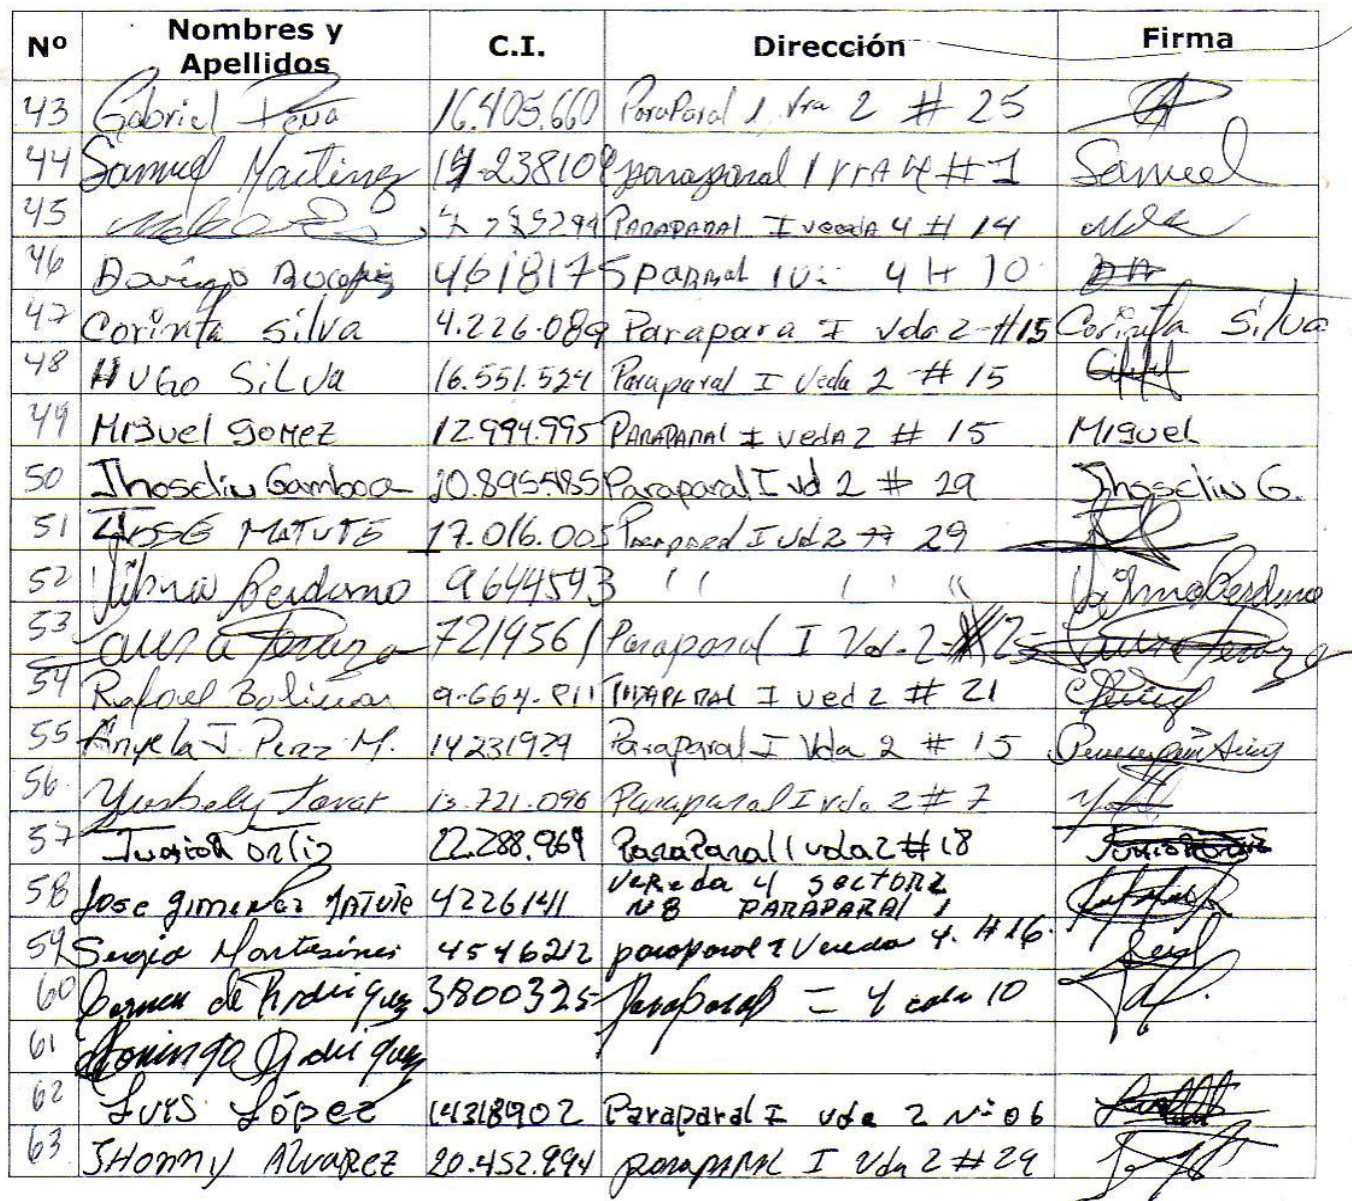 Nº Nombres y Apellidos C.I. Dirección Firma
43 Gabriel Peña 16.405.660 Paraparal 1 Vra 2 # 25
44 Samuel Martinez paraparal 1 # 1 Samuel
45 PARAPARAL I vereda 4 # 14
46 4618175 4 10
47 Corinta Silva 4.226.089 Parapara I vda 2 #15 Corinta Silva
48 HUGO SiLVa 16.551.524 Paraparal I Veda 2 # 15
49 Miguel gomez 12.994.995 PARAPARAL I vedA 2 # 15 Miguel
50 Jhoselin Gamboa Paraparal I vd 2 # 29 Jhoselin G.
51 JOSE MATUTE 17.016.005 I vd 2 # 29
52 Perdomo 9644543 " " "
53 Laura Peraza 7219561 Paraparal I Vda. 2 25 Laura Peraza
54 Rafael Bolivar 9.664.811 I ved 2 # 21
55 Anyela J. Perez M. 14231929 Paraparal I Vda 2 # 15
56 Yusbely Tovar 13.721.096 Paraparal I vda 2 # 7
57 Junior ortiz 22.288.969 ParaParal 1 vda 2 # 18
58 Jose gimenez MATUTE 4226141 Vereda 4 SECTOR 2
Nº 8 PARAPARAL 1
59 Sergio Montesinos 4546212 paraparal I Vereda 4. #16.
60 Carmen de Rodriguez 3800325 Paraparal 4 10
61 Domingo Rodriguez
62 Luis López 14318902 Paraparal I vda 2 Nº 06
63 JHonny Alvarez 20.452.894 paraparal I Vda 2 # 29